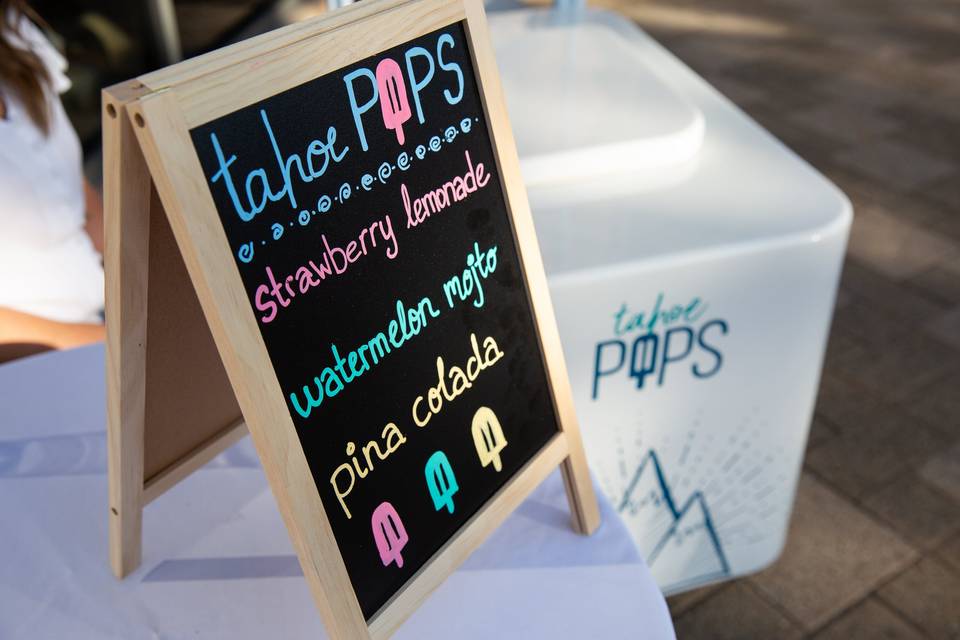 tahoe POPS
strawberry lemonade
watermelon mojto
pina colada
tahoe
POPS